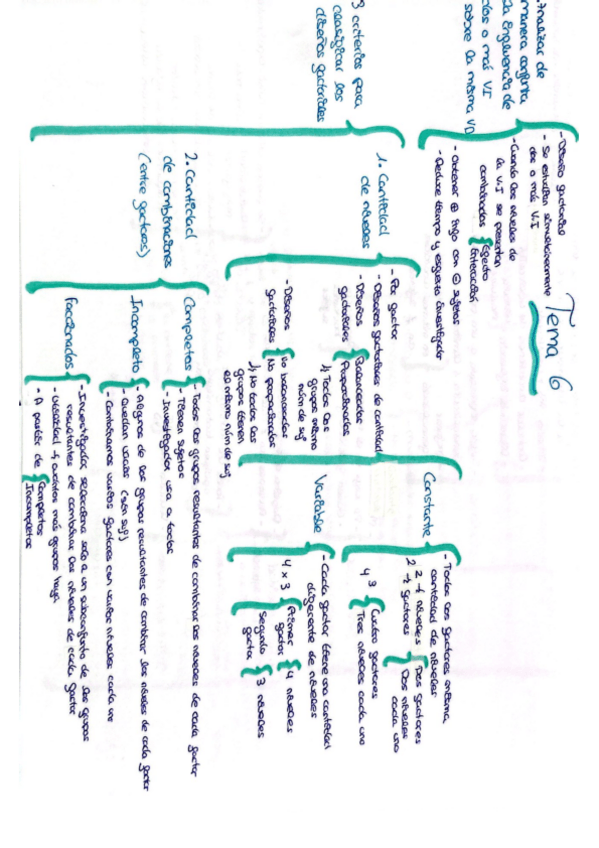 Tema 6
analizar de
manera conjunta
la influencia de
dos o más VI
sobre la misma VD
- Diseño factorial
- Se estudian simultáneamente
dos o más V.I
- Cuando los niveles de
la V.I se presentan
combinados
Efecto
Interacción
- Obtener ⊕ info con ⊖ sujetos
- Reduce tiempo y esfuerzo investigador
3 criterios para
clasificar los
diseños factoriales
1. Cantidad
de niveles
- Por factor
- Diseños factoriales de cantidad
Constante
- Todos los factores misma
cantidad de niveles
2 → niveles
2 → factores
Dos factores
Dos niveles
cada uno
4 3
Cuatro factores
Tres niveles cada uno
Variable
- Cada factor tiene una cantidad
diferente de niveles
4 x 3
Primer
factor
4 niveles
Segundo
factor
3 niveles
- Diseños
factoriales
Balanceados
Proporcionados
↳ Todos los
grupos mismo
núm de suj
- Diseños
factoriales
No balanceados
No proporcionados
↳ No todos los
grupos tienen
el mismo núm de suj
2. Cantidad
de combinaciones
(entre factores)
Completas
- Todos los grupos resultantes de combinar los niveles de cada factor
- Tienen sujetos
- Investigador usa a todos
Incompleto
- Algunos de los grupos resultantes de combinar los niveles de cada factor
- Quedan vacíos (sin suj)
- Combinamos varios factores con varios niveles cada uno
Fraccionados
- Investigador selecciona solo a un subconjunto de los grupos
resultantes de combinar los niveles de cada factor
- Utilidad ↑ cuantos más grupos haya
- A partir de
Completos
Incompletos